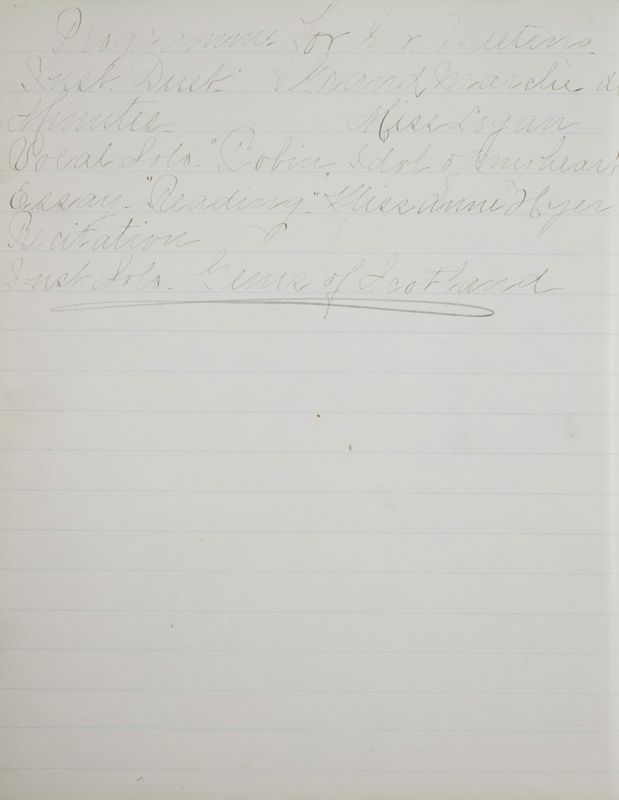 Programme for Meeting
Inst. Duet. Grand Marche de
Minutes- Miss Logan
Vocal Solo- "Robin, Idol of my heart
Essay- "Reading" Miss Annie Hyer
Recitation
Inst. Solo- Gems of Scotland